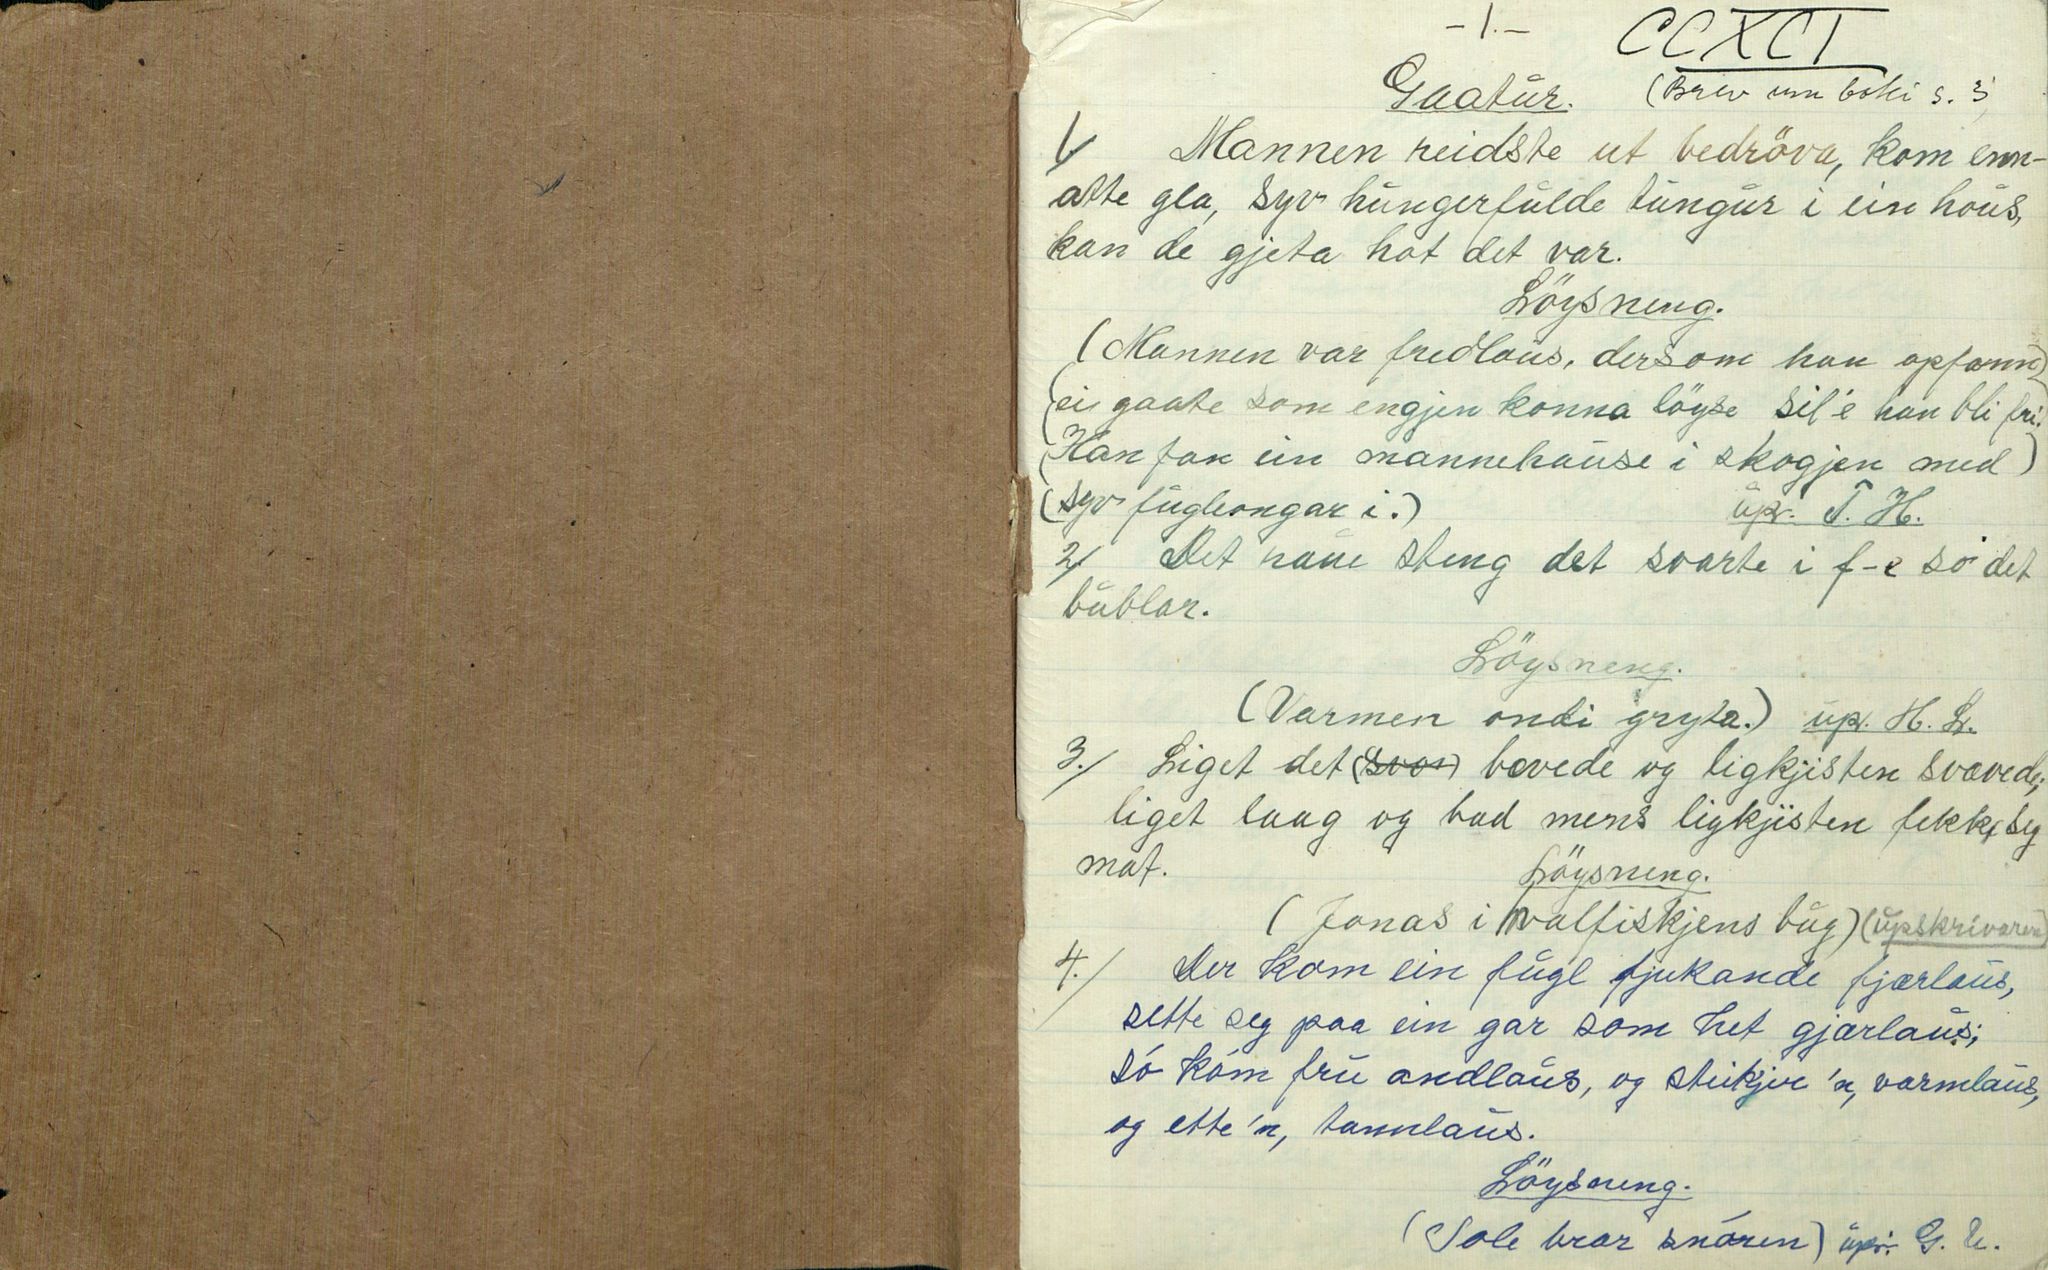 -1.-
CCXCI
Gaatur.
(Brev um boki s. 3)
1/ Mannen reidste ut bedröva, kom enn-
atte gla, syv hungerfulde tungur i ein hous,
kan de gjeta hot det var.
Löysneng.
(Mannen var fredlaus, dersom han opfann)
(ei gaate som engjen konna löyse sil'e han bli fri.)
(Han fan ein mannehause i skogjen med)
(syv fugleongar i.) upr. T. H.
2/ Det raue steng det svarte i f-e só det
bublar.
Löysneng.
(Varmen ondi gryta.) upr. H. L.
3./ Liget det (svor) bævede og ligkjisten svævede,
liget laag og bad mens ligkjisten fekk seg
mat.
Löysneng.
(Jonas i valfiskjens bug) (upskrivaren)
4./ Der kom ein fugl fjukande fjærlaus,
sette seg paa ein gar som het gjærlaus;
só kóm fru andlaus, og steikjer 'n, varmlaus,
og ette 'n, tannlaus.
Löysneng.
(Sole brær snóren) upr. G. U.